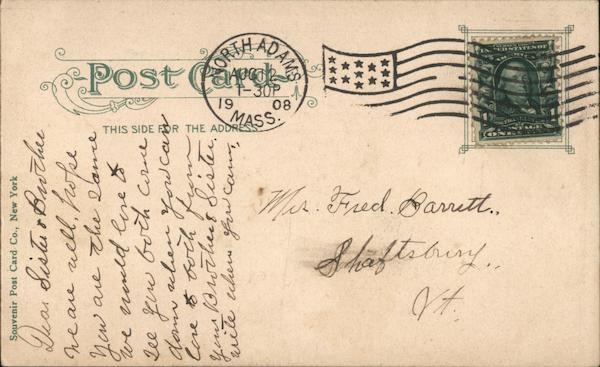 Post Card
THIS SIDE FOR THE ADDRESS
NORTH ADAMS
AUG 12
1-30P
19 08
MASS.
ONE
Souvenir Post Card Co., New York
Dear Sister & Brother
we are well. hope
you are the same
we would love to
see you both come
down when you can
love to both from
your Brother & Sister.
write when you can.
Mr. Fred. Barrett.,
Shaftsbury.,
Vt.